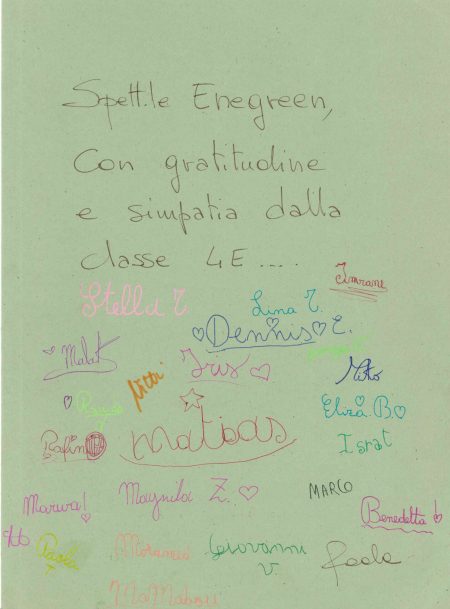 Spett.le Enegreen,
Con gratitudine
e simpatia dalla
classe 4E ....
Imrane
Stella T.
Lina T.
Dennis E.
Malak
Mitti
Iris
Miko
Eliza B.
Rafin
Matias
Israt
Marwa!
Maynila Z.
MARCO
Benedetta!
Paola
Mohamed
Giovanni
V.
Paola
MaMadou